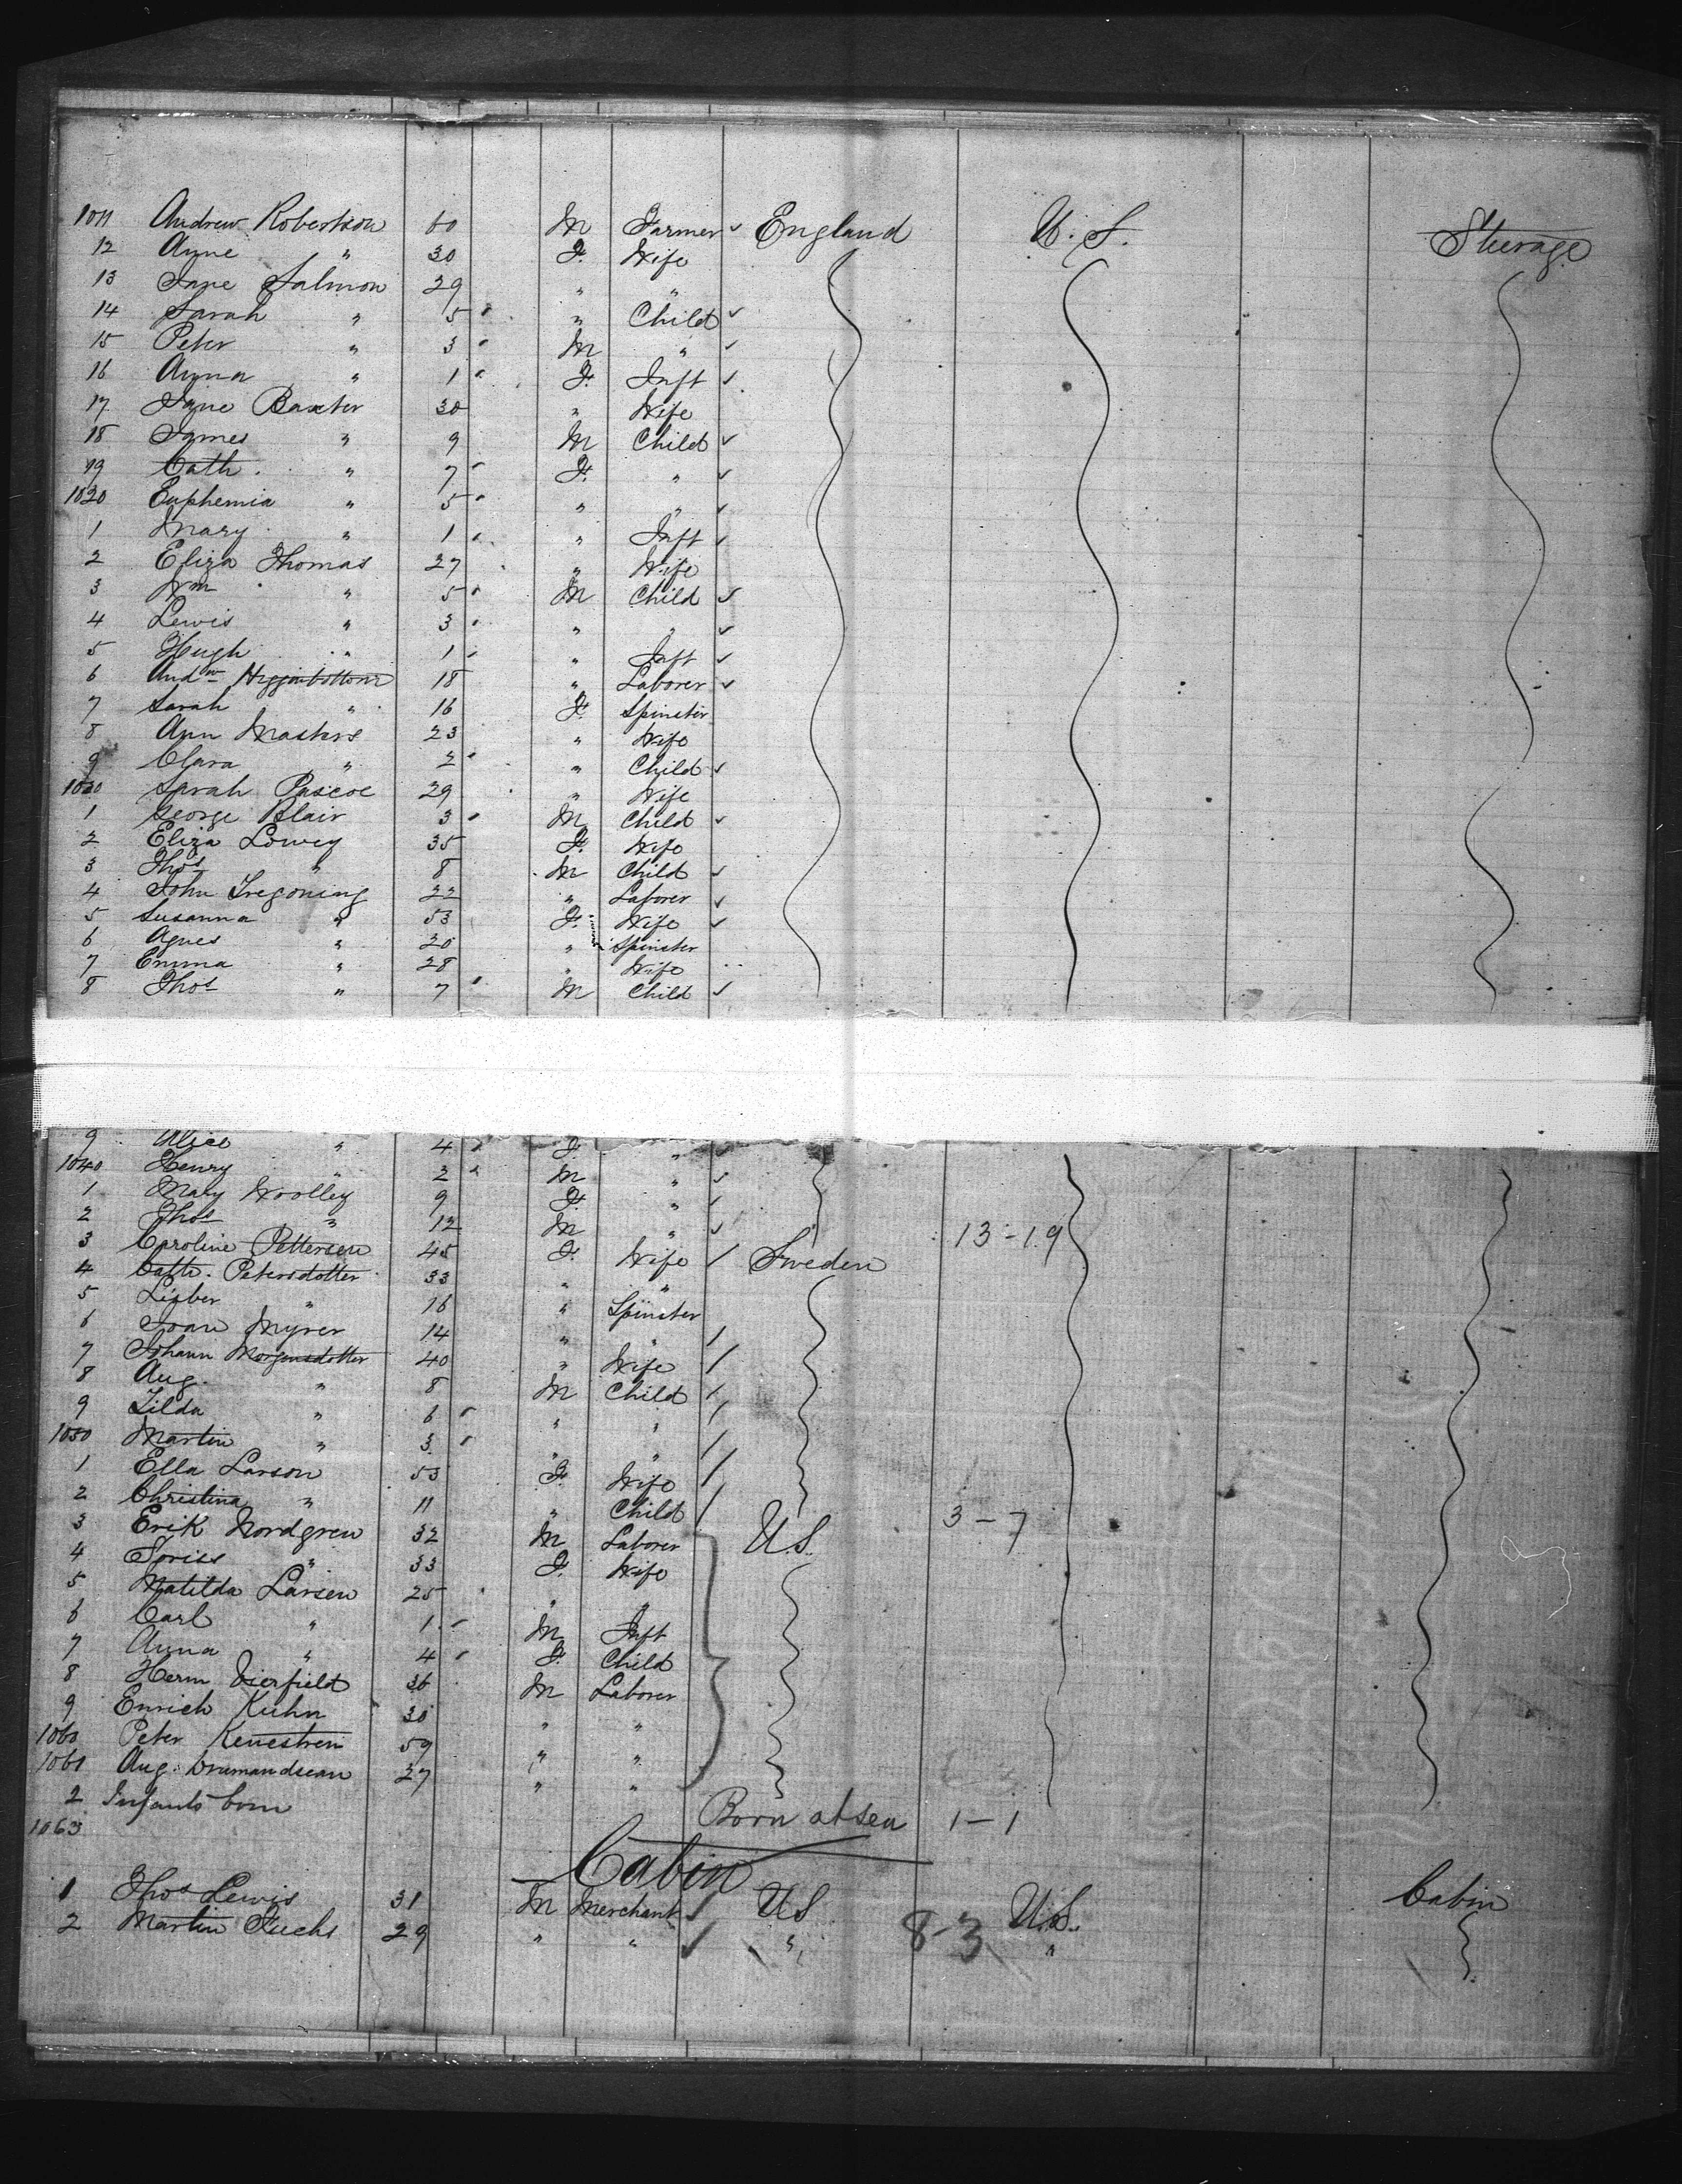 1011 Andrew Robertson 60 M Farmer ✓ England U.S. Steerage
12 Anne " 30 F. Wife
13 Jane Salmon 29 " "
14 Sarah " 5 " Child ✓
15 Peter " 3 M " ✓
16 Anna " 1 F. Inft ✓
17 Jane Baxter 30 " Wife
18 James " 9 M Child ✓
19 Cath. " 7 F. " ✓
1020 Euphemia " 5 " " ✓
1 Mary " 1 " Inft ✓
2 Eliza Thomas 27 " Wife
3 Wm " 5 M Child ✓
4 Lewis " 3 " " ✓
5 Hugh " 1 " Inft ✓
6 Andw Higginbottom 18 " Laborer ✓
7 Sarah " 16 F. Spinster
8 Ann Masters 23 " Wife
9 Clara " 2 " Child ✓
1030 Sarah Pascoe 29 " Wife
1 George Blair 3 M Child ✓
2 Eliza Lowey 35 F. Wife
3 Thos " 8 M Child ✓
4 John Tregoning 22 " Laborer ✓
5 Susanna " 53 F. Wife ✓
6 Agnes " 20 " Spinster
7 Emma " 28 " Wife
8 Thos " 7 M Child ✓
9 Alice " 4 F. "
1040 Henry " 2 M " ✓
1 Mary Woolley 9 F. " ✓
2 Thos " 12 M " ✓
3 Caroline Pettersen 45 F. Wife / Sweden 13-19
4 Cath. Petersdotter 33 " "
5 " 16 " Spinster
6 Myrer 14 " " /
7 Johann 40 " Wife /
8 Aug. " 8 M Child /
9 Tilda " 6 " " /
1050 Martin " 3 " " /
1 Ella Larson 53 F. Wife /
2 Christina " 11 " Child /
3 Erik Nordgren 32 M Laborer U.S. 3-7
4 " 33 F. Wife
5 Matilda Larsen 25 " "
6 Carl " 1 M Inft
7 Anna " 4 F. Child
8 Herm 36 M Laborer
9 Kuhn 30 " "
1060 Peter 59 " "
1061 Aug. 27 " "
2 Infants born Born at sea 1-1
1063
Cabin
1 Thos Lewis 31 M Merchant ✓ US U.S. Cabin
2 Martin Fuchs 29 " " ✓ " 8-3 "